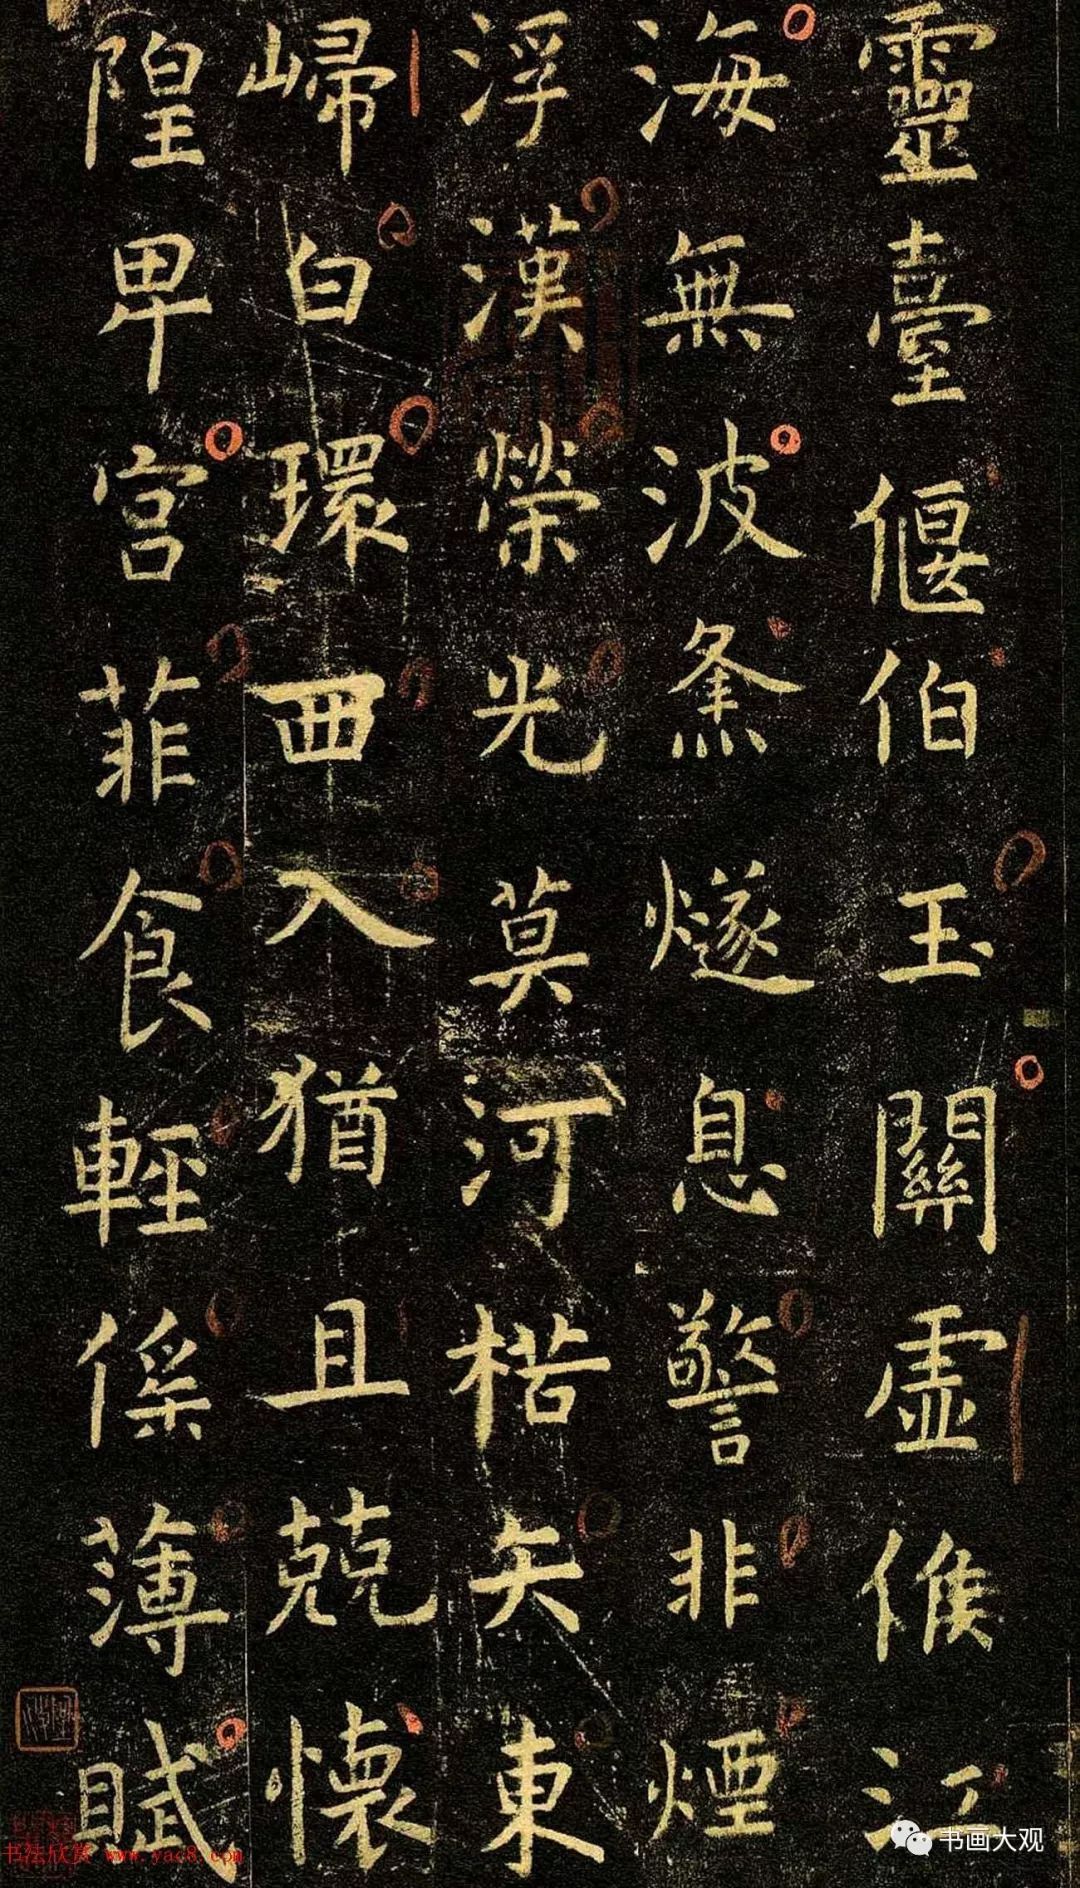 靈臺偃伯玉關虛候江
海無波烽燧息警非煙
浮漢榮光莫河楛矢東
歸白環西入猶且兢懷
隍卑宮菲食輕傜薄賦
书画大观
书法欣赏 www.yac8.com